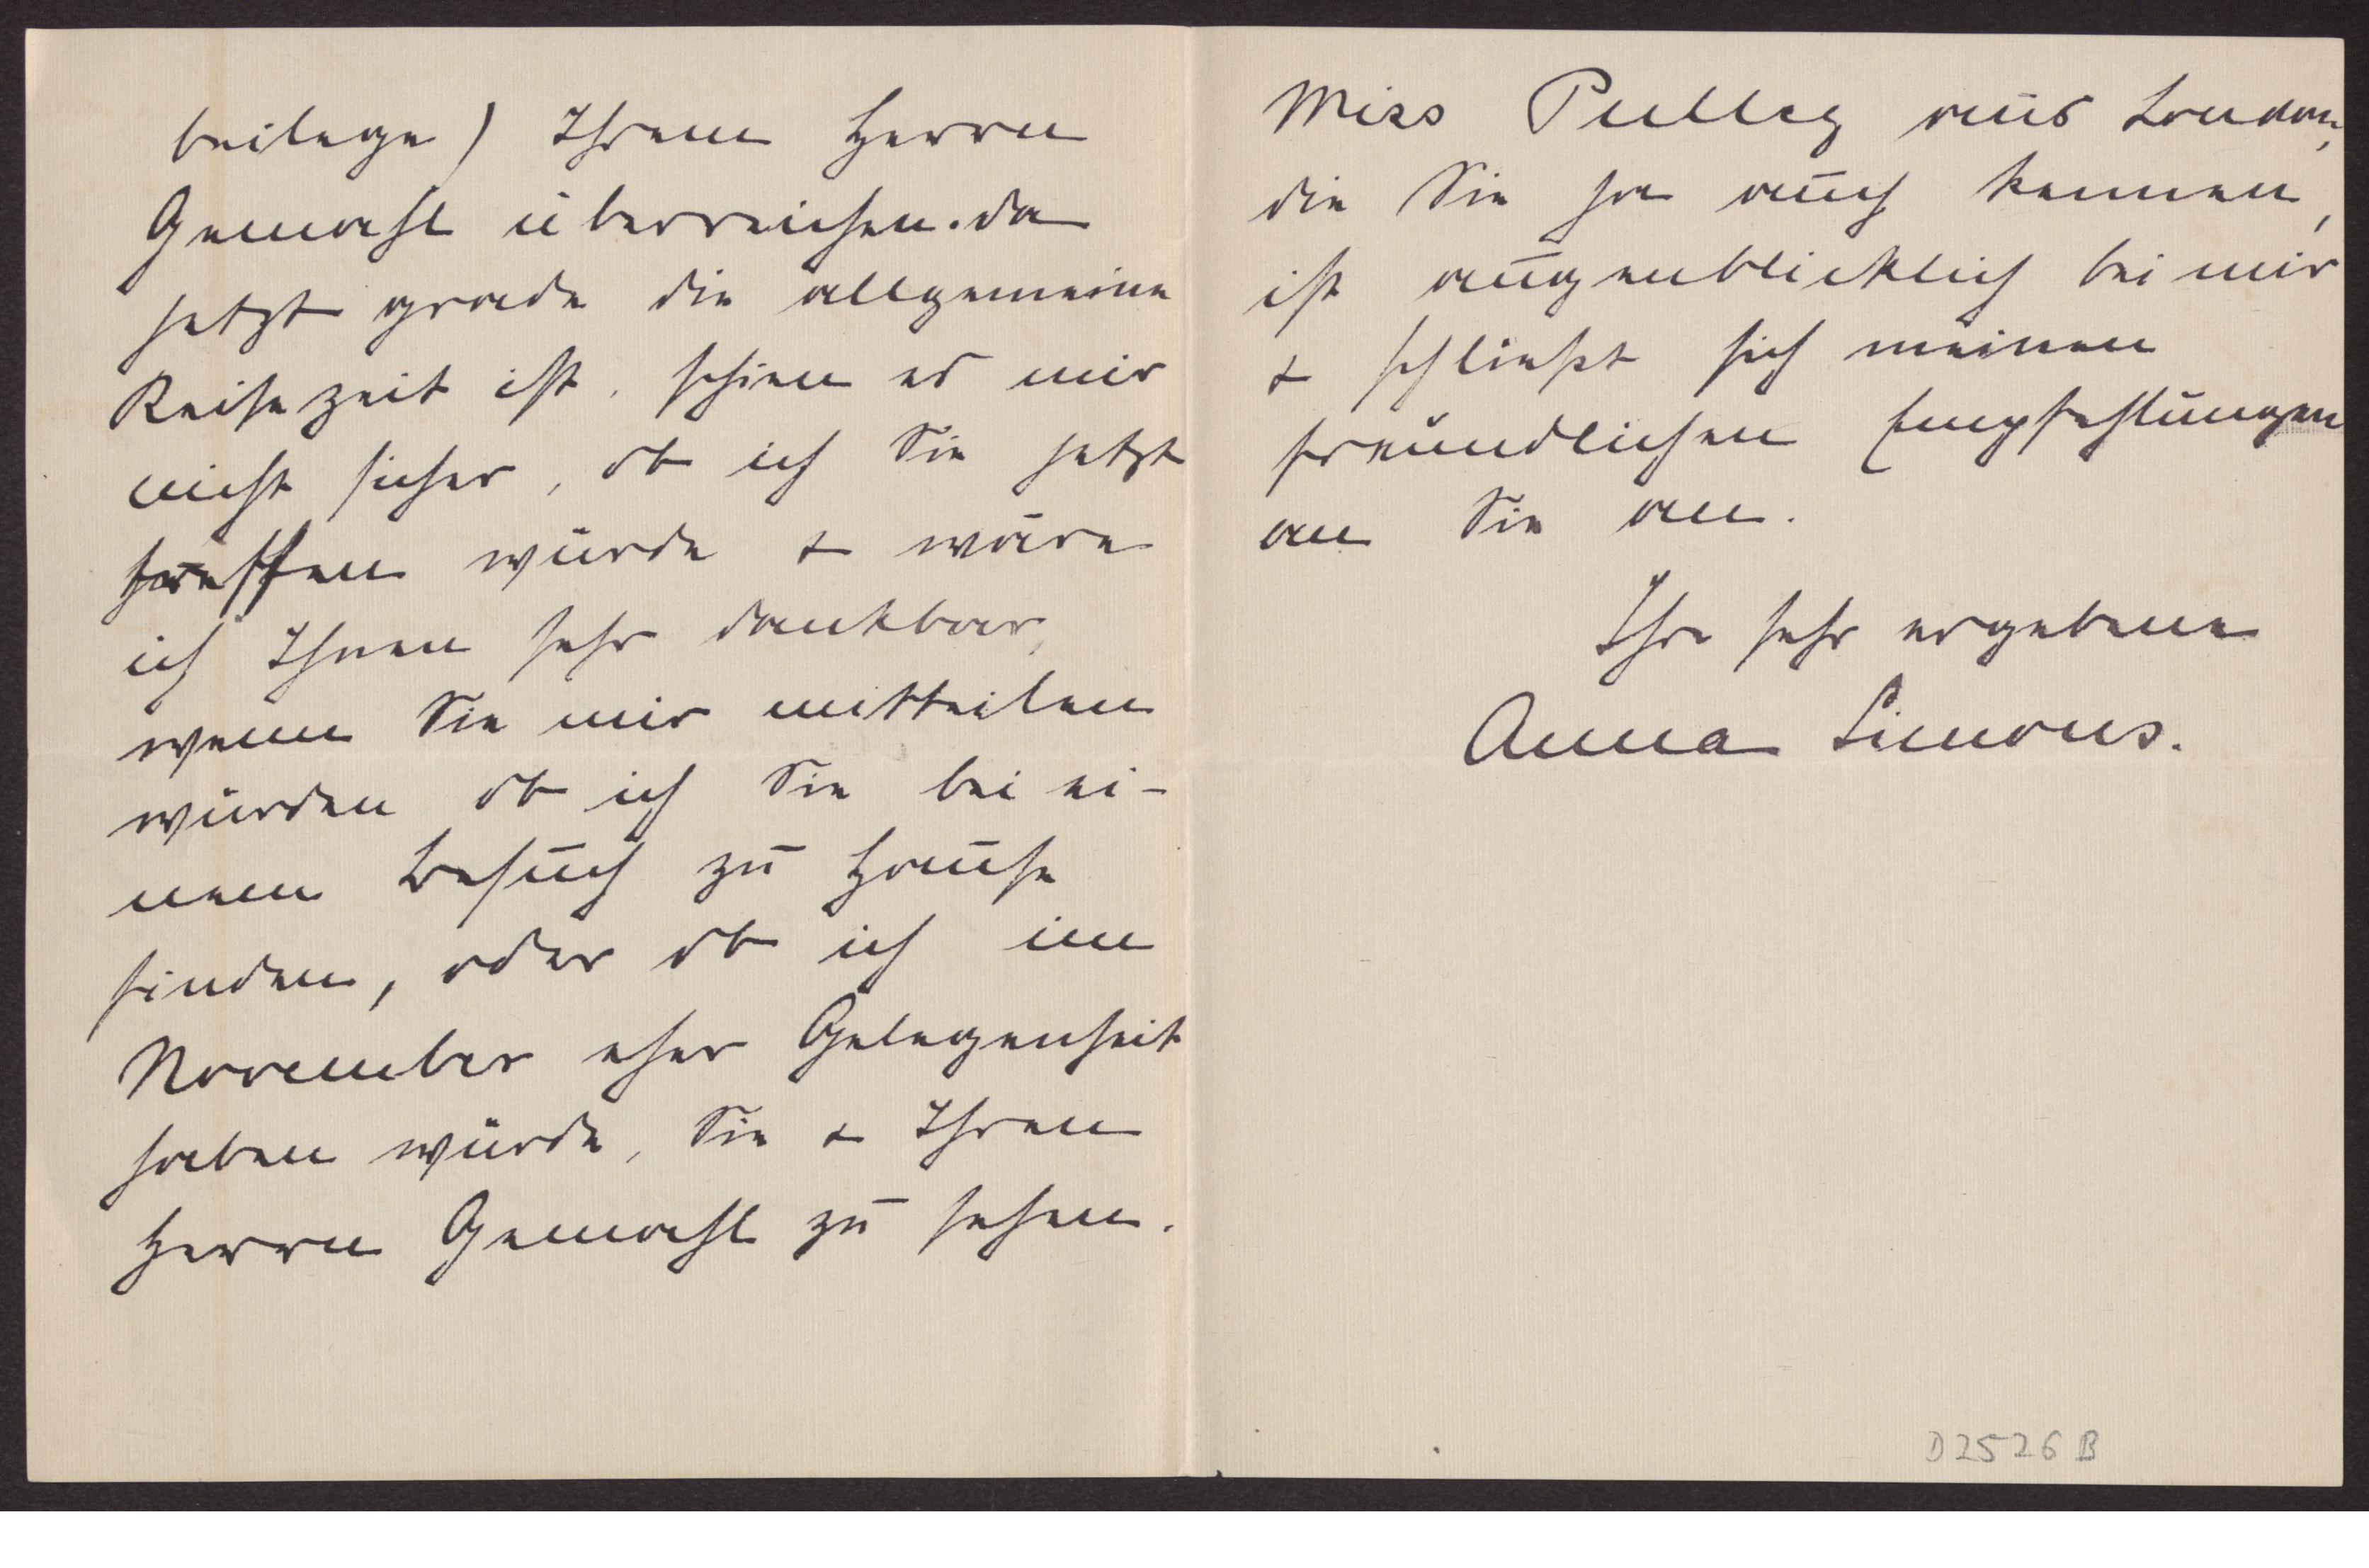 beilege) Ihrem Herrn
Gemahl überreichen. da
jetzt grade die allgemeine
Reisezeit ist, schien es mir
nicht sicher, ob ich Sie jetzt
treffen würde + wäre
ich Ihnen sehr dankbar,
wenn Sie mir mitteilen
würden ob ich Sie bei ei-
nem Besuch zu Hause
finden, oder ob ich im
November eher Gelegenheit
haben würde, Sie + Ihren
Herrn Gemahl zu sehen.
Miss Pulley aus London,
die Sie ja auch kennen,
ist augenblicklich bei mir
+ schließt sich meinen
freundlichen Empfehlungen
an Sie an.
Ihre sehr ergebene
Anna Simons.
D2526 B